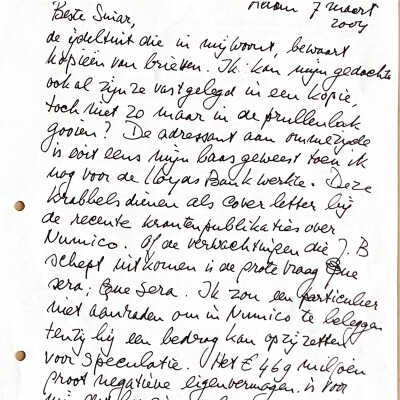 7 maart
2004
Beste Sinar,
de ijdeltuit die in mij woont, bewaart
kopieën van brieven. Ik kan mijn gedachte
ook al zijn ze vastgelegd in een kopie,
toch niet zo maar in de prullenbak
gooien? De adressant aan ommezijde
is ooit eens mijn baas geweest toen ik
nog voor de Lloyds Bank werkte. Deze
krabbels dienen als cover letter bij
de recente krantenpublikaties over
Numico. Of de verwachtingen die J. B
schept uitkomen is de grote vraag Que
sera, Que Sera. Ik zou een particulier
niet aanraden om in Numico te beleggen
tenzij hij een bedrag kan opzij zetten
voor speculatie. Het € 469 miljoen
groot negatieve eigenvermogen is voor